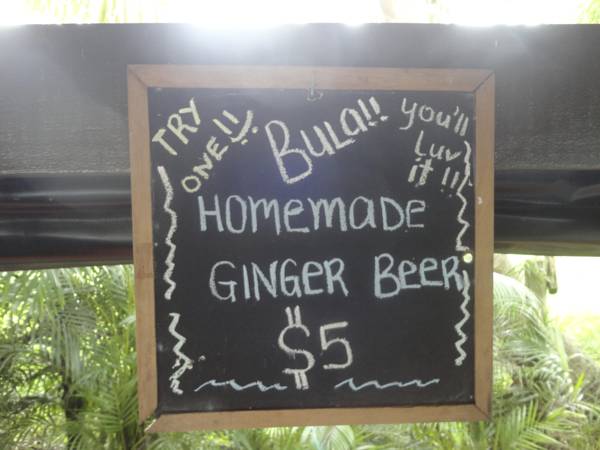 TRY ONE!!
Bula!!
you'll Luv it!!
HOMEMADE
GINGER BEER
$5